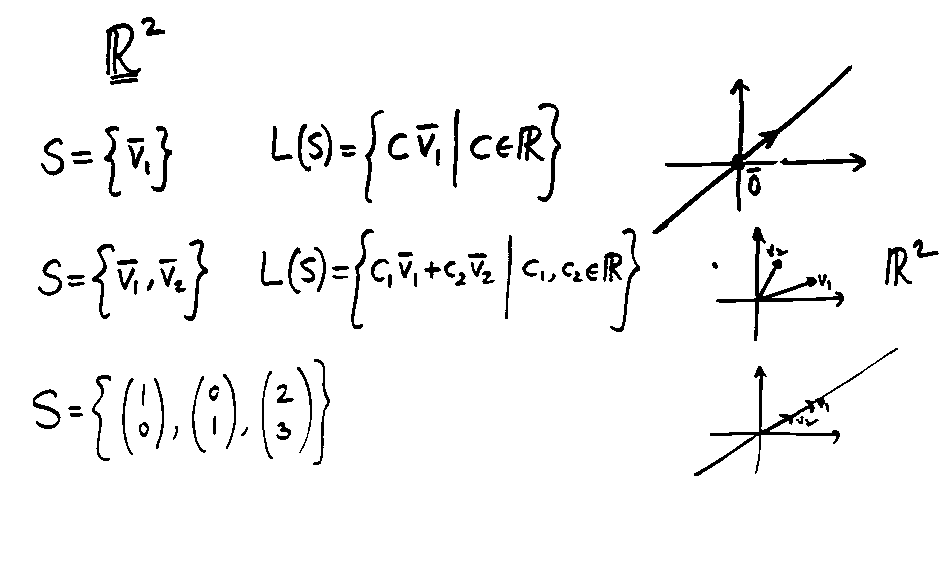 ℝ²
S = {v̄₁} L(S) = {C v̄₁ | C ∈ ℝ}
0̄
S = {v̄₁, v̄₂} L(S) = {C₁ v̄₁ + C₂ v̄₂ | C₁, C₂ ∈ ℝ}
v₂
v₁
ℝ²
S = {(1 0), (0 1), (2 3)}
v₁
v₂